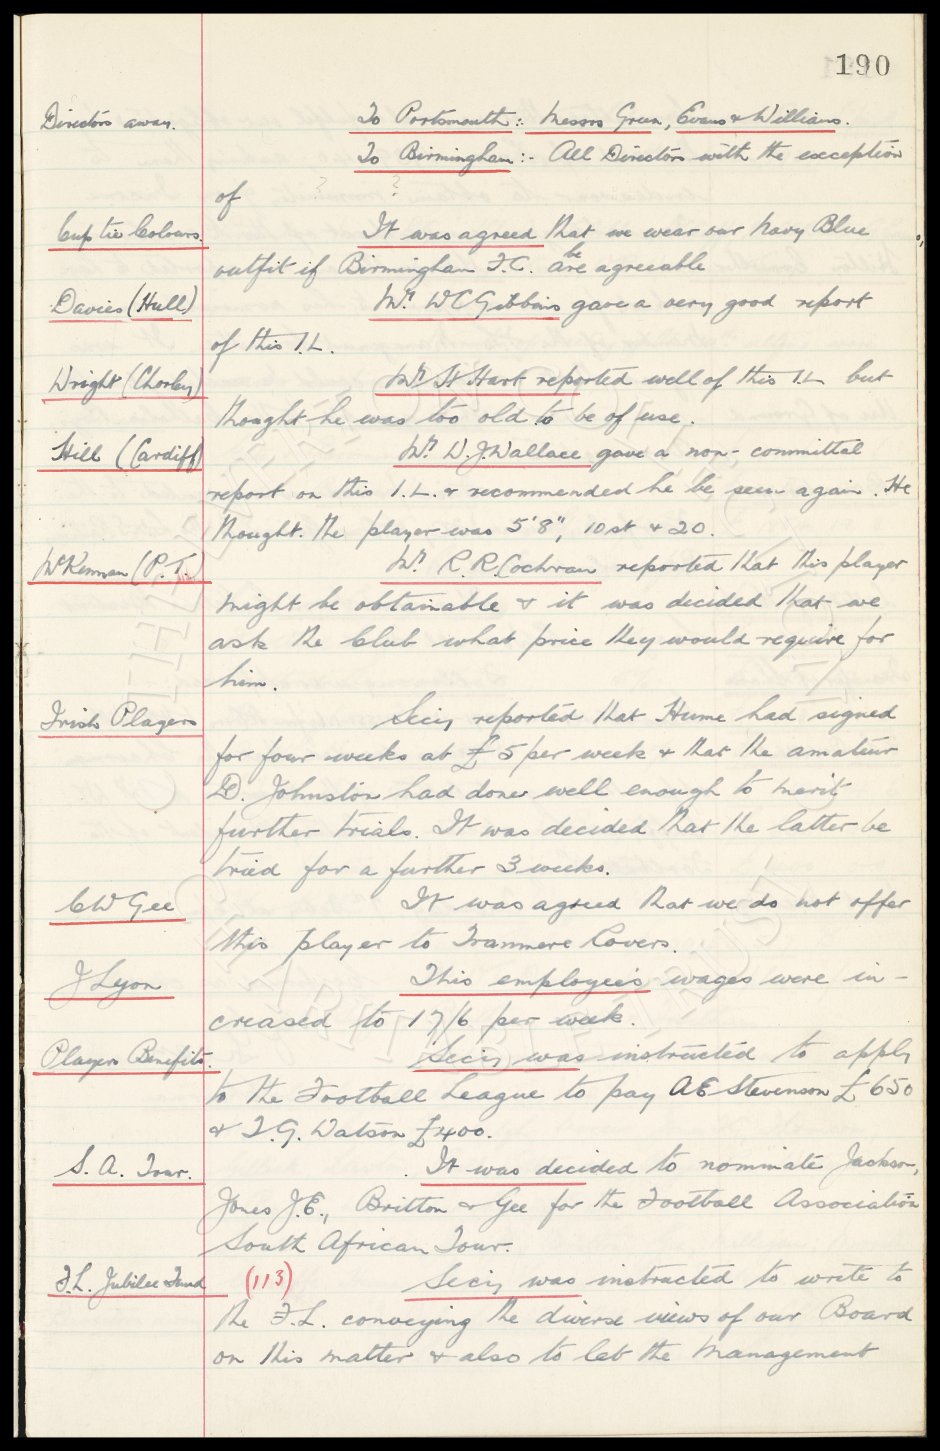 190
Directors away. To Portsmouth:- Messrs Green, Evans & Williams.
To Birmingham:- All Directors with the exception
of ? ?
Cup tie Colours. It was agreed that we wear our Navy Blue
outfit if Birmingham F.C. are be agreeable
Davies (Hull) Mr. W C Gibbins gave a very good report
of this I.L.
Wright (Chorley) Mr H Hart reported well of this I.L. but
thought he was too old to be of use.
Hill (Cardiff) Mr. W.J. Wallace gave a non-committal
report on this I.L. & recommended he be seen again. He
thought the player was 5'8", 10st & 20.
McKennan (P.T.) Mr. R.R. Cochran reported that this player
might be obtainable & it was decided that we
ask the Club what price they would require for
him.
Irish Players Secy reported that Hume had signed
for four weeks at £5 per week & that the amateur
D. Johnston had done well enough to merit
further trials. It was decided that the latter be
tried for a further 3 weeks.
C W Gee It was agreed that we do not offer
this player to Tranmere Rovers.
J Lyon This employee's wages were in-
creased to 17/6 per week.
Players Benefits. Secy was instructed to apply
to the Football League to pay A E Stevenson £650
& T.G. Watson £400.
S.A. Tour. It was decided to nominate Jackson,
Jones J.E., Britton & Gee for the Football Association
South African Tour.
F.L. Jubilee Fund (113) Secy was instructed to write to
the F.L. conveying the diverse views of our Board
on this matter & also to let the Management